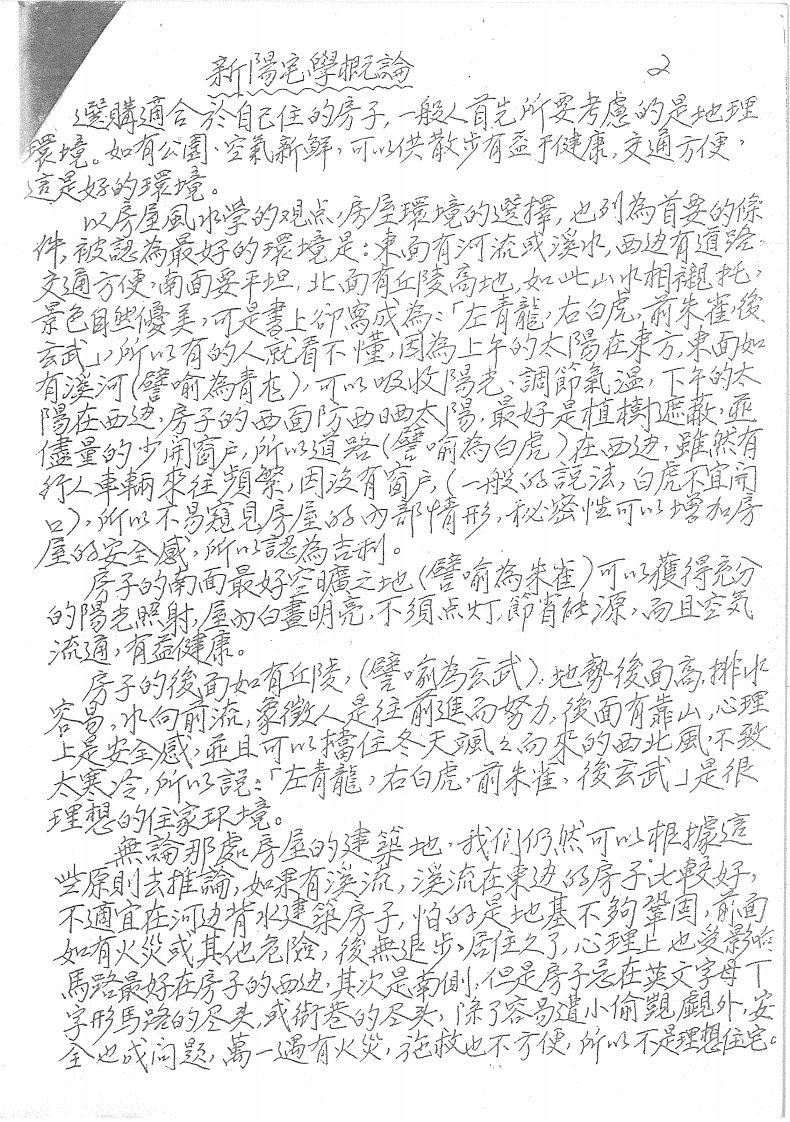 新陽宅學概論
2
選購適合於自己住的房子,一般人首先所要考慮的是地理
環境。如有公園、空氣新鮮,可以供散步有益于健康,交通方便,
這是好的環境。
以房屋風水学的观点,房屋環境的選擇,也列為首要的條
件,被認為最好的環境是:東面有河流或溪水,西边有道路,
交通方便,南面要平坦,北面有丘陵高地,如此山水相襯托,
景色自然優美,可是書上卻寫成為:「左青龍,右白虎,前朱雀,後
玄武」,所以有的人就看不懂,因為上午的太陽在東方,東面如
有溪河(譬喻為青龙),可以吸收陽光、調節氣溫,下午的太
陽在西边,房子的西面防西晒太陽,最好是植樹遮蔽,並
儘量的少開窗戶,所以道路(譬喻為白虎)在西边,雖然有
行人車輛來往頻繁,因沒有窗戶,(一般的説法,白虎不宜開
口),所以不易窺見房屋的內部情形,秘密性可以增加房
屋的安全感,所以認為吉利。
房子的南面最好空曠之地(譬喻為朱雀)可以獲得充分
的陽光照射,屋內白晝明亮,不須点灯,節省能源,而且空気
流通,有益健康。
房子的後面如有丘陵,(譬喻為玄武),地勢後面高,排水
容易,水向前流,象徵人是往前進而努力,後面有靠山,心理
上是安全感,並且可以擋住冬天颯々而來的西北風,不致
太寒冷,所以説:「左青龍,右白虎,前朱雀,後玄武」是很
理想的住家环境。
無論那處房屋的建築地,我們仍然可以根據這
些原則去推論,如果有溪流,溪流在東边的房子比較好,
不適宜在河边背水建築房子,怕的是地基不夠鞏固,前面
如有火災或其他危險,後無退步,居住久了,心理上也受影响
馬路最好在房子的西边,其次是南側,但是房子忌在英文字母丁
字形馬路的尽头,或街巷的尽头,除了容易遭小偷覬覦外,安
全也成问題,萬一遇有火災,拖救也不方便,所以不是理想住宅。